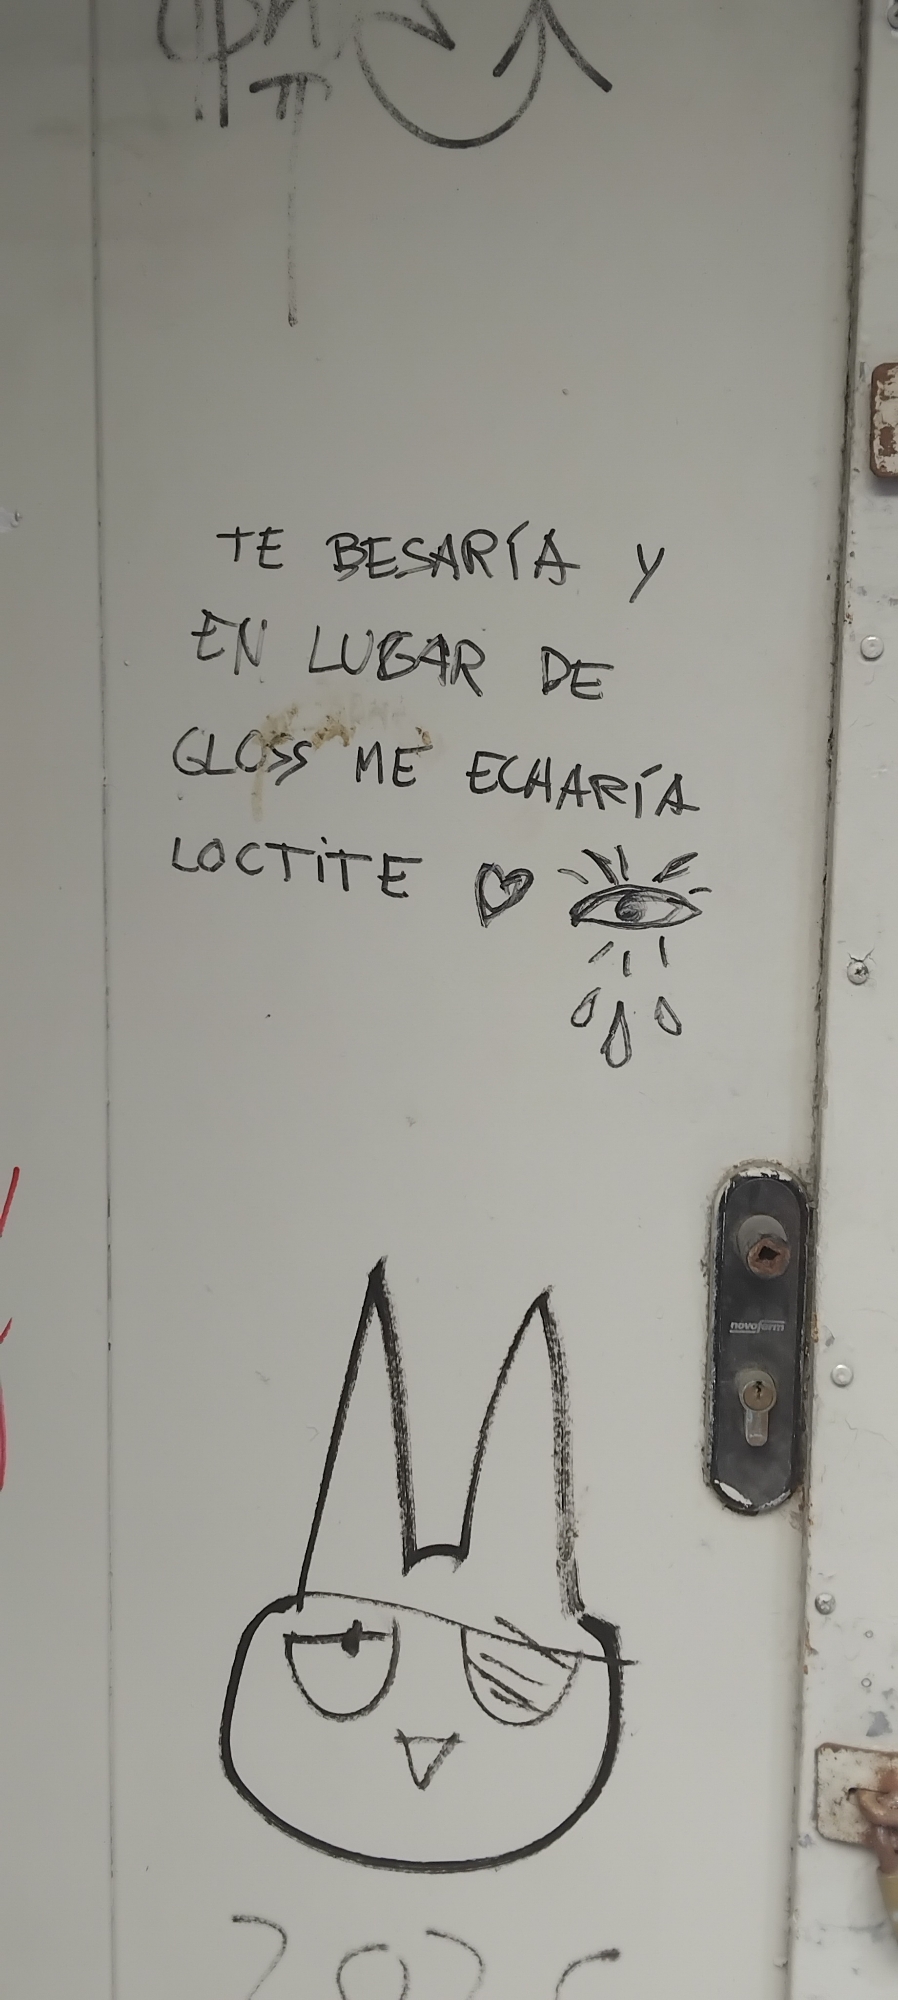 TE BESARÍA Y
EN LUGAR DE
GLOSS ME ECHARÍA
LOCTITE
novoferm